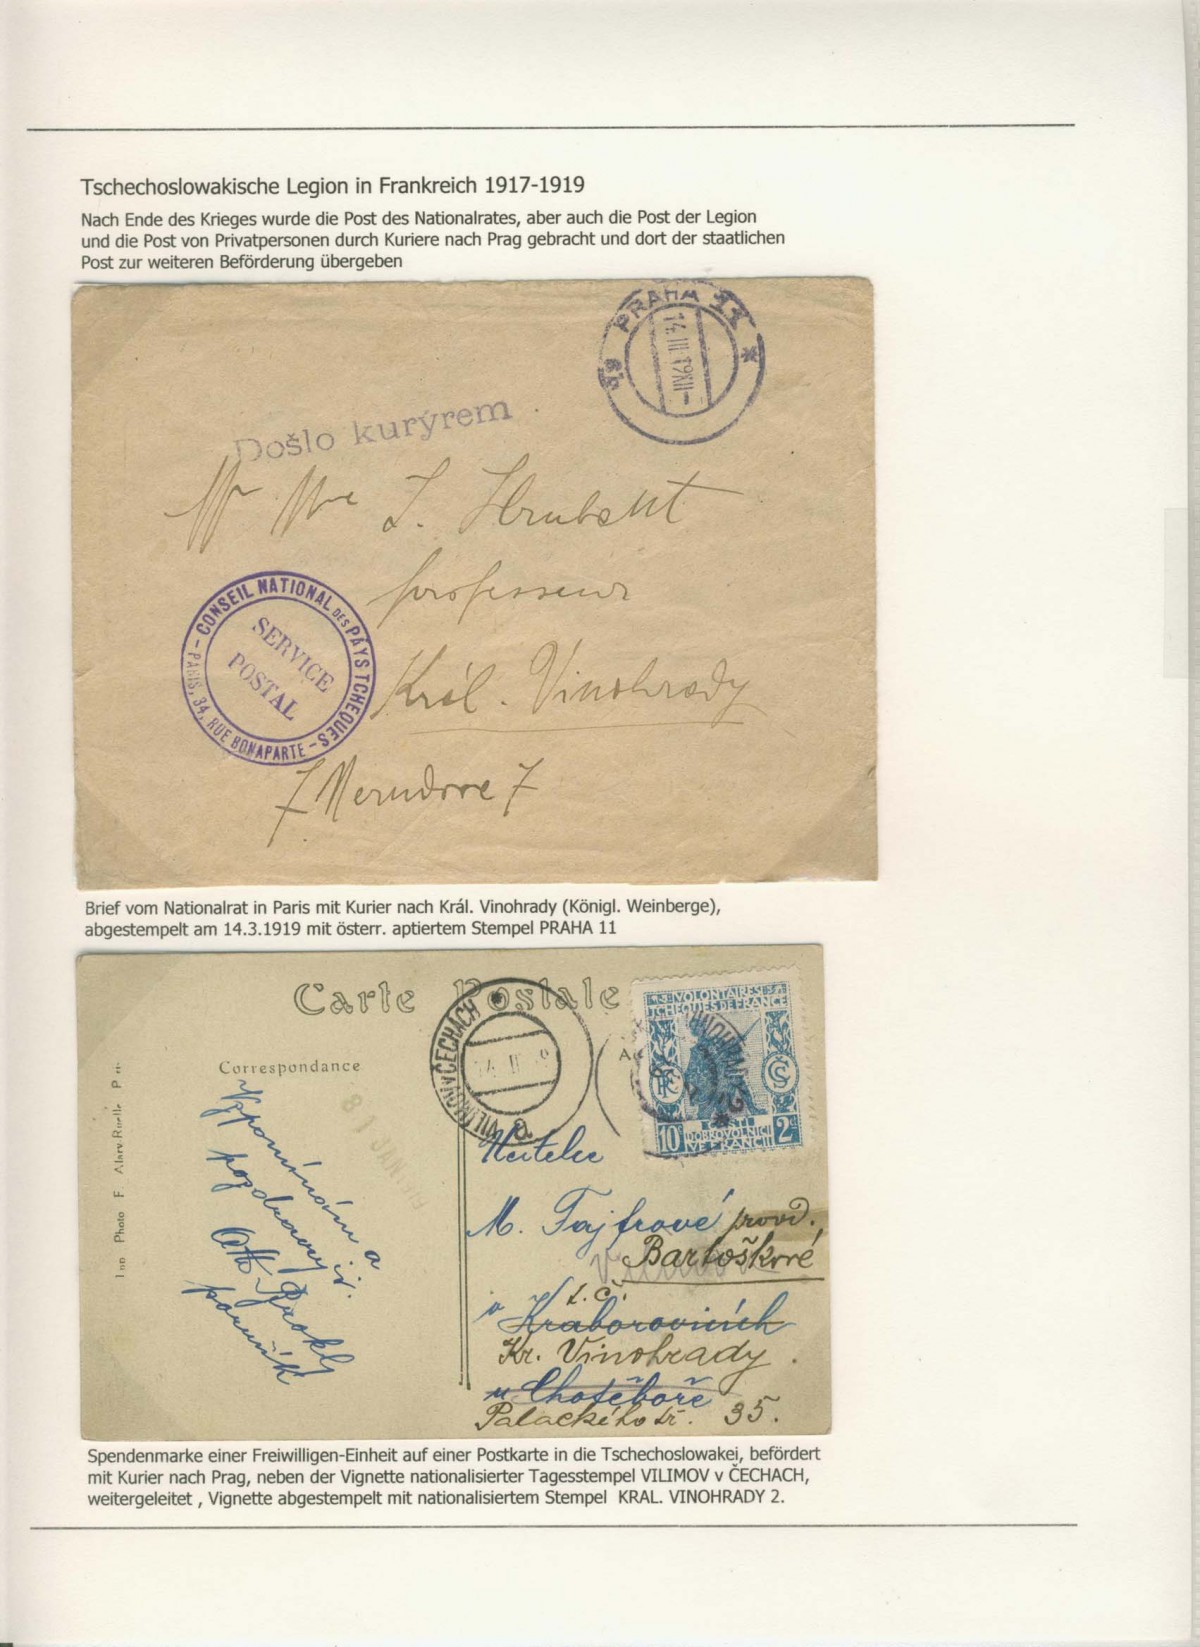 Tschechoslowakische Legion in Frankreich 1917-1919
Nach Ende des Krieges wurde die Post des Nationalrates, aber auch die Post der Legion
und die Post von Privatpersonen durch Kuriere nach Prag gebracht und dort der staatlichen
Post zur weiteren Beförderung übergeben
PRAHA 11
14 III 19 XII-
Došlo kurýrem
professeur
Král. Vinohrady
CONSEIL NATIONAL DES PAYS TCHEQUES
PARIS, 34, RUE BONAPARTE
SERVICE
POSTAL
Brief vom Nationalrat in Paris mit Kurier nach Král. Vinohrady (Königl. Weinberge),
abgestempelt am 14.3.1919 mit österr. aptiertem Stempel PRAHA 11
Carte Postale
Correspondance
VILIMOV v ČECHACH
VOLONTAIRES
TCHEQUES DE FRANCE
RF
ČS
10 ČEŠTÍ
DOBROVOLNÍCI
VE FRANCII 2c
Photo
M. Tajfrové provd.
Bartoškové
Vzpomínám a
pozdravuji.
poručík
t. č.
v Kraborovicích
Kr. Vinohrady.
u Chotěboře
Palackého tř. 35.
Spendenmarke einer Freiwilligen-Einheit auf einer Postkarte in die Tschechoslowakei, befördert
mit Kurier nach Prag, neben der Vignette nationalisierter Tagesstempel VILIMOV v ČECHACH,
weitergeleitet , Vignette abgestempelt mit nationalisiertem Stempel KRAL. VINOHRADY 2.